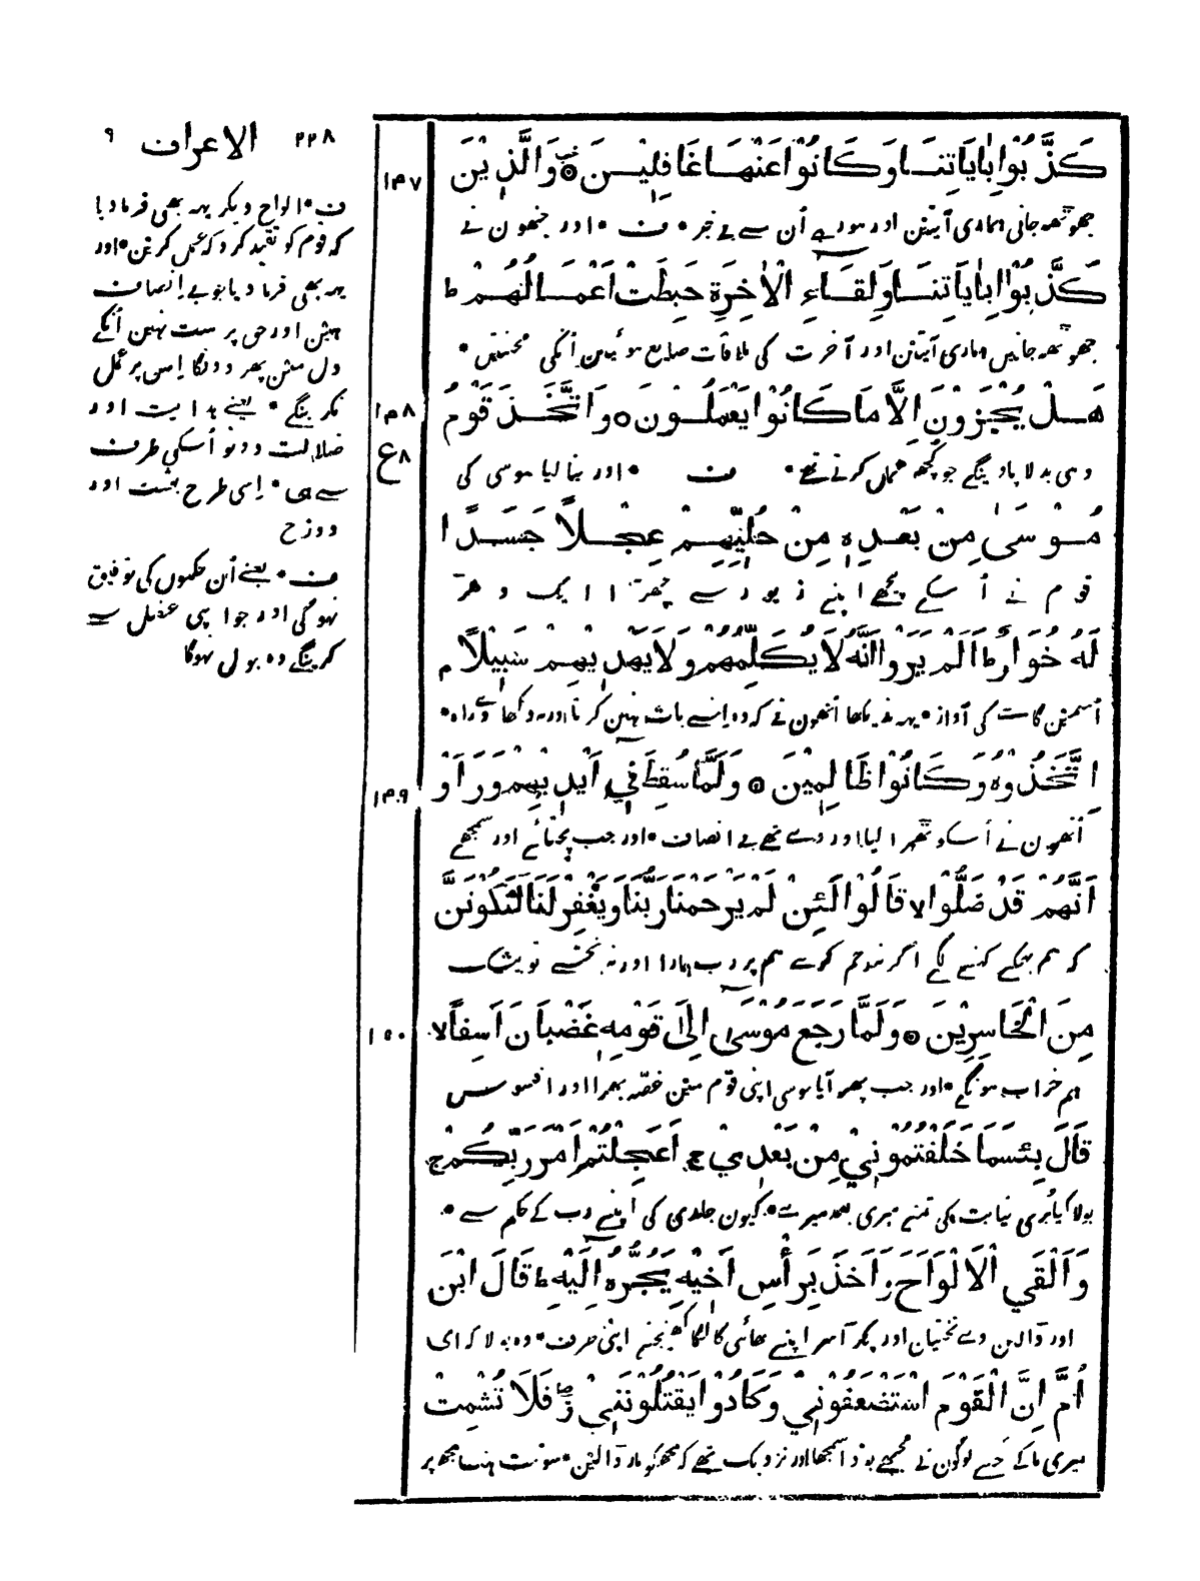 ۲۲۸ الاعراف ۹
كَذَّبُوْا بِاٰيَاتِنَا وَكَانُوْا عَنْهَا غَافِلِيْنَ ۞ وَالَّذِيْنَ
۱۴۷
جھوٹھہ جانی ہماری آیتین اور ہورہے اُن سے بے خبر • ف • اور جنھون نے
كَذَّبُوْا بِاٰيَاتِنَا وَلِقَاءِ الْاٰخِرَةِ حَبِطَتْ اَعْمَالُهُمْ ط
جھوٹھہ جانیں ہماری آیتین اور آخرت کی ملاقات ضایع ہوئین اُنکی محنتیں •
هَلْ يُجْزَوْنَ اِلَّا مَا كَانُوْا يَعْمَلُوْنَ ۞ وَاتَّخَذَ قَوْمُ
۱۴۸
ع ۸
وہی بدلا پاوینگے جو کچھہ عمل کرتے تھے • ف • اور بنا لیا موسی کی
مُوْسَىٰ مِنْ بَعْدِهٖ مِنْ حُلِيِّهِمْ عِجْلًا جَسَدًا
قوم نے اُسکے پیچھے اپنے زیور سے بچھڑا ایک دھڑ
لَهٗ خُوَارٌ ط اَلَمْ يَرَوْا اَنَّهٗ لَا يُكَلِّمُهُمْ وَلَا يَهْدِيْهِمْ سَبِيْلًا م
اُسمین گائے کی آواز • یہہ نہ دیکھا اُنھون نے کہ وہ اِنسے بات نہین کرتا اور نہ دکھاوے راہ •
اِتَّخَذُوْهُ وَكَانُوْا ظَالِمِيْنَ ۞ وَلَمَّا سُقِطَ فِيْ اَيْدِيْهِمْ وَرَاَوْا
۱۴۹
اُنھون نے اُسکو ٹھہرا لیا اور وے تھے بے انصاف • اور جب پچتائے اور سمجھے
اَنَّهُمْ قَدْ ضَلُّوْا لا قَالُوْا لَئِنْ لَمْ يَرْحَمْنَا رَبُّنَا وَيَغْفِرْ لَنَا لَنَكُوْنَنَّ
کہ ہم بہکے کہنے لگے اگر نہ رحم کرے ہم پر رب ہمارا اور نہ بخشے تو بیشک
مِنَ الْخَاسِرِيْنَ ۞ وَلَمَّا رَجَعَ مُوْسَىٰ اِلَىٰ قَوْمِهٖ غَضْبَانَ اَسِفًا لا
۱۵۰
ہم خراب ہونگے • اور جب پھر آیا موسی اپنی قوم مین غصّہ بھرا اور افسوس
قَالَ بِئْسَمَا خَلَفْتُمُوْنِيْ مِنْ بَعْدِيْ ج اَعَجِلْتُمْ اَمْرَ رَبِّكُمْ ج
بولا کیا بُری نیابت کی تمنے میری بعد میرے • کیون جلدی کی اپنے رب کے حکم سے •
وَاَلْقَى الْاَلْوَاحَ وَاَخَذَ بِرَأْسِ اَخِيْهِ يَجُرُّهٗ اِلَيْهِ ط قَالَ ابْنَ
اور ڈالدین وے تختیان اور پکڑا سر اپنے بھائی کا لگا کھینچنے اپنی طرف • وہ بولا کہ ای
اُمَّ اِنَّ الْقَوْمَ اسْتَضْعَفُوْنِيْ وَكَادُوْا يَقْتُلُوْنَنِيْ ز فَلَا تُشْمِتْ
میری ما کے جنے لوگون نے مجھے بودا سمجھا اور نزدیک تھے کہ مجھکو مار ڈالین • سو مت ہنسا مجھہ پر
ف • الواح دیکر یہہ بھی فرما دیا
کہ قوم کو تقید کرو کہ عمل کرین • اور
یہہ بھی فرما دیا جو بے اِنصاف
ہین اور حق پرست نہین اُنکے
دل مین پھر دونگا اِس پر عمل
نکرینگے • یعنے ہدایت اور
ضلالت دونو اُسکی طرف
سے ہی • اِسی طرح بہشت اور
دوزخ
ف • یعنے اُن حکمون کی توفیق
نہو گی اور جو اپنی عقل سے
کرینگے وہ قبول نہوگا